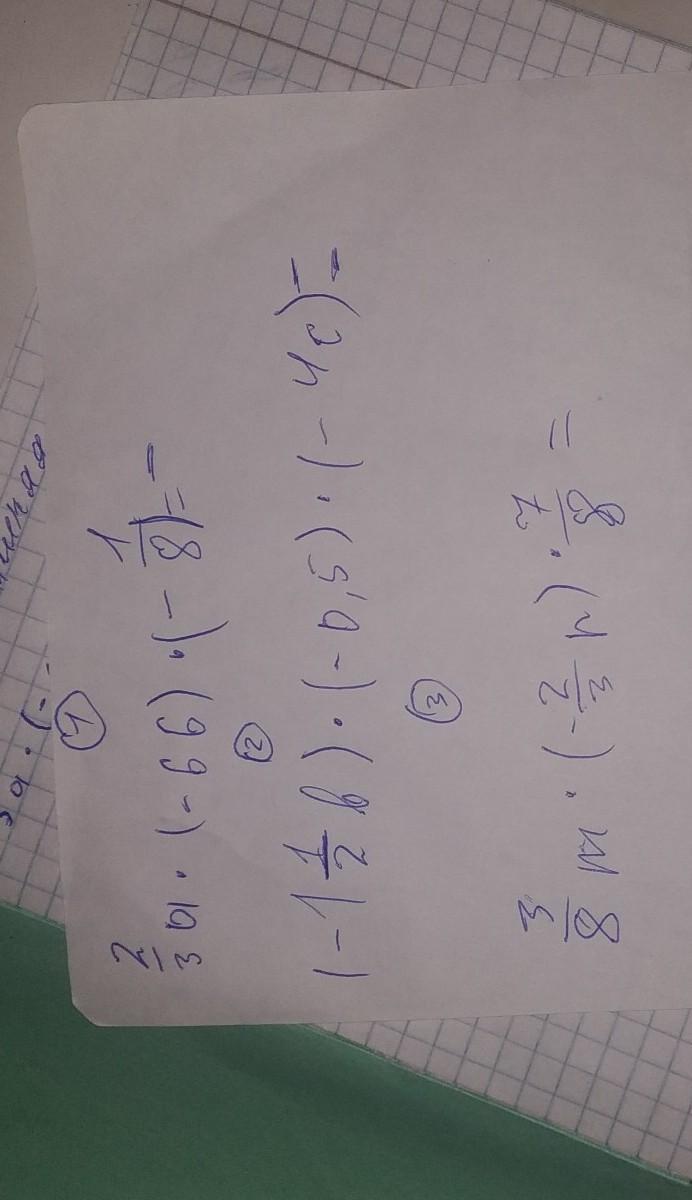 ①
2/3 a · (-6б) · (-1/8) =
②
(-1 1/2 b) · (-0,5) · (-4c) =
③
3/8 m · (-2/3 n) · 7/8 =